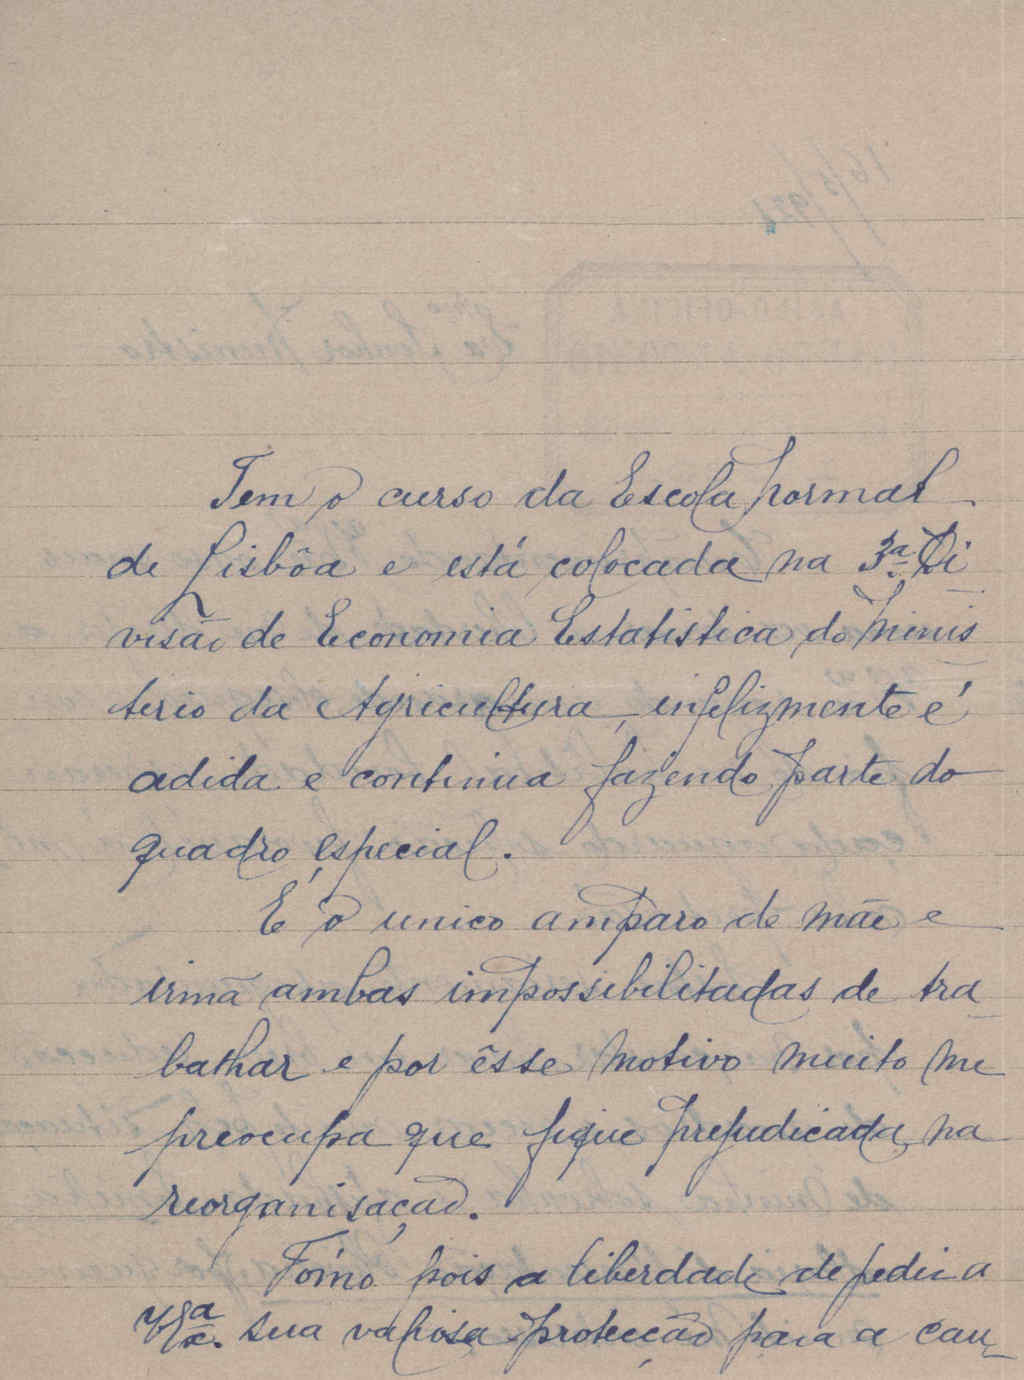 Tem o curso da Escola normal
de Lisbôa e está colocada na 3ª Di
visão de Economia Estatistica do Minis
terio da Agricultura, infelizmente é
adida e continua fazendo parte do
quadro especial.
É o unico amparo de mãe e
irmã ambas impossibilitadas de tra_
balhar e por êsse motivo muito me
preocupa que fique prejudicada na
reorganisação.
Tómo pois a liberdade de pedir a
V. Ex.ª sua valiosa protecção para a cau_